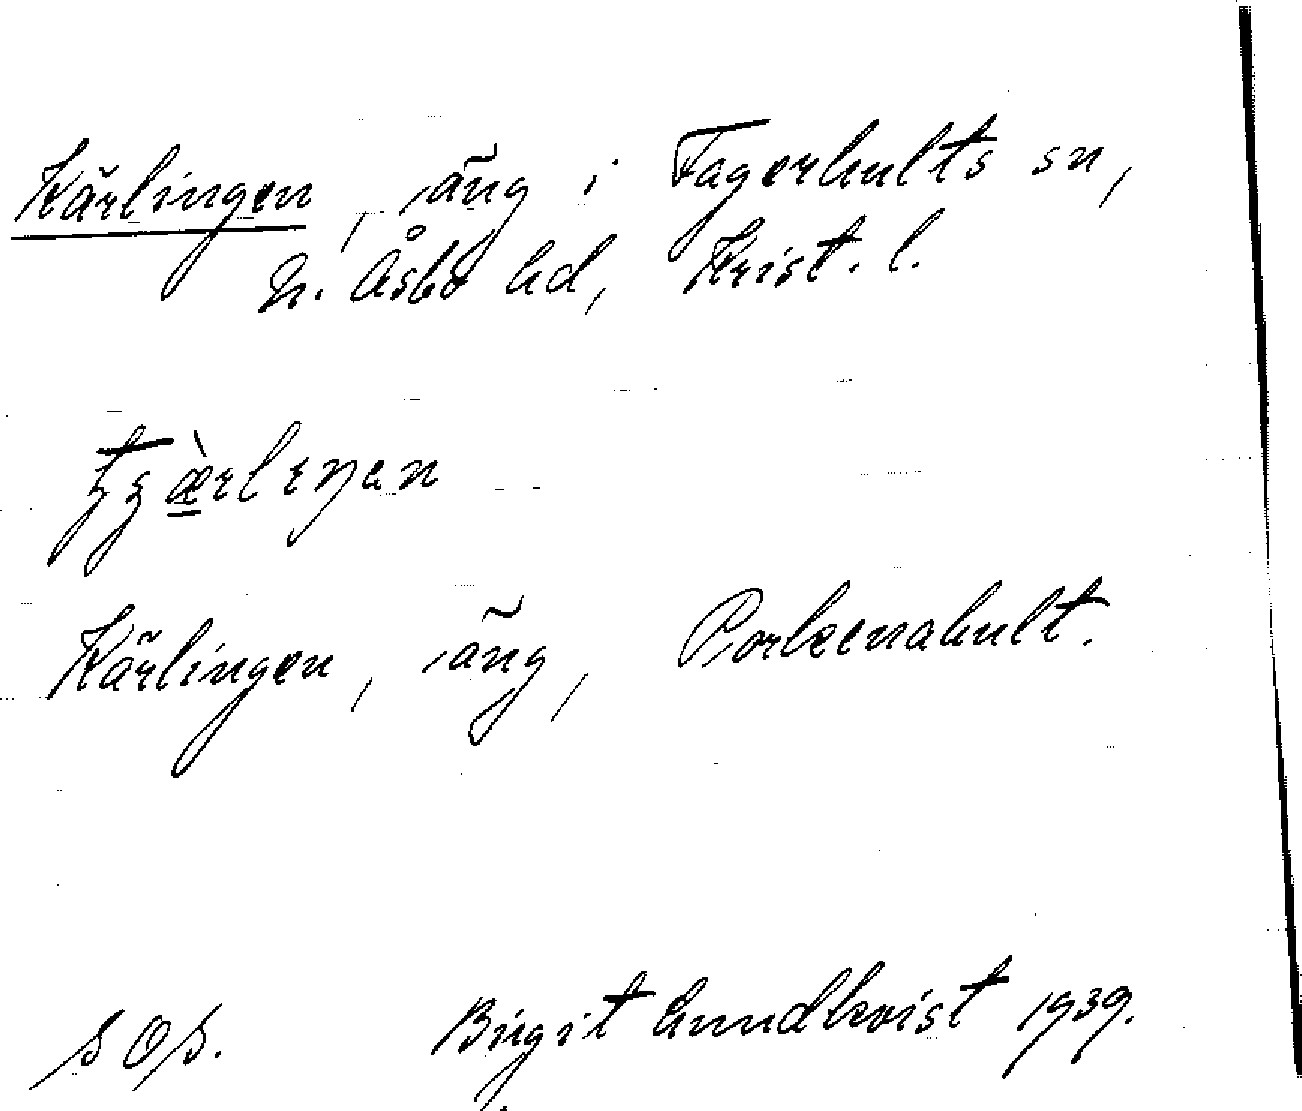 Kärlingen, äng i Fagerhults sn,
N. Åsbo hd, Krist. l.
Kärlingen, äng, Porkenahult.
SOS. Birgit Lundkvist 1939.